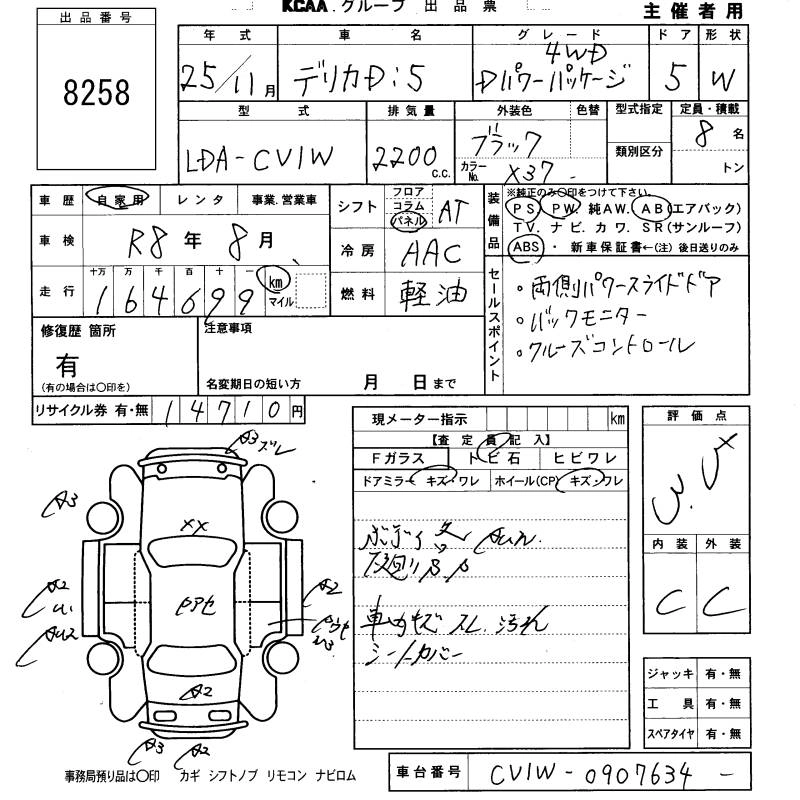 KCAA.グループ 出品票
主催者用
出品番号
8258
年式 車名 グレード ドア 形状
4WD
25/11月 デリカD:5 Dパワーパッケージ 5 W
型式 排気量 外装色 色替 型式指定 定員・積載
LDA-CV1W 2200 c.c. ブラック 8名
カラーNo. X37 類別区分 トン
車歴 自家用 レンタ 事業.営業車
車検 R8年8月
走行 十万 万 千 百 十 一
164699 km マイル
シフト フロア コラム パネル AT
冷房 AAC
燃料 軽油
装備品 ※純正のみ○印をつけて下さい。
PS PW. 純AW. AB(エアバック)
TV. ナビ. カワ. SR(サンルーフ)
ABS ・ 新車保証書←(注)後日送りのみ
セールスポイント
・両側パワースライドドア
・バックモニター
・クルーズコントロール
修復歴 箇所
有
(有の場合は○印を)
注意事項
名変期日の短い方 月 日まで
リサイクル券 有・無 14710円
現メーター指示 km
【査定員記入】
Fガラス トビ石 ヒビワレ
ドアミラー キズ・ワレ ホイール(CP) キズ・ワレ
ボディ
車内キズ スレ. 汚れ
シートカバー
評価点
内装 外装
C C
ジャッキ 有・無
工具 有・無
スペアタイヤ 有・無
A3 ズレ
A3
XX
A2
A2
A2
A3
A2
事務局預り品は○印 カギ シフトノブ リモコン ナビロム
車台番号 CV1W-0907634-